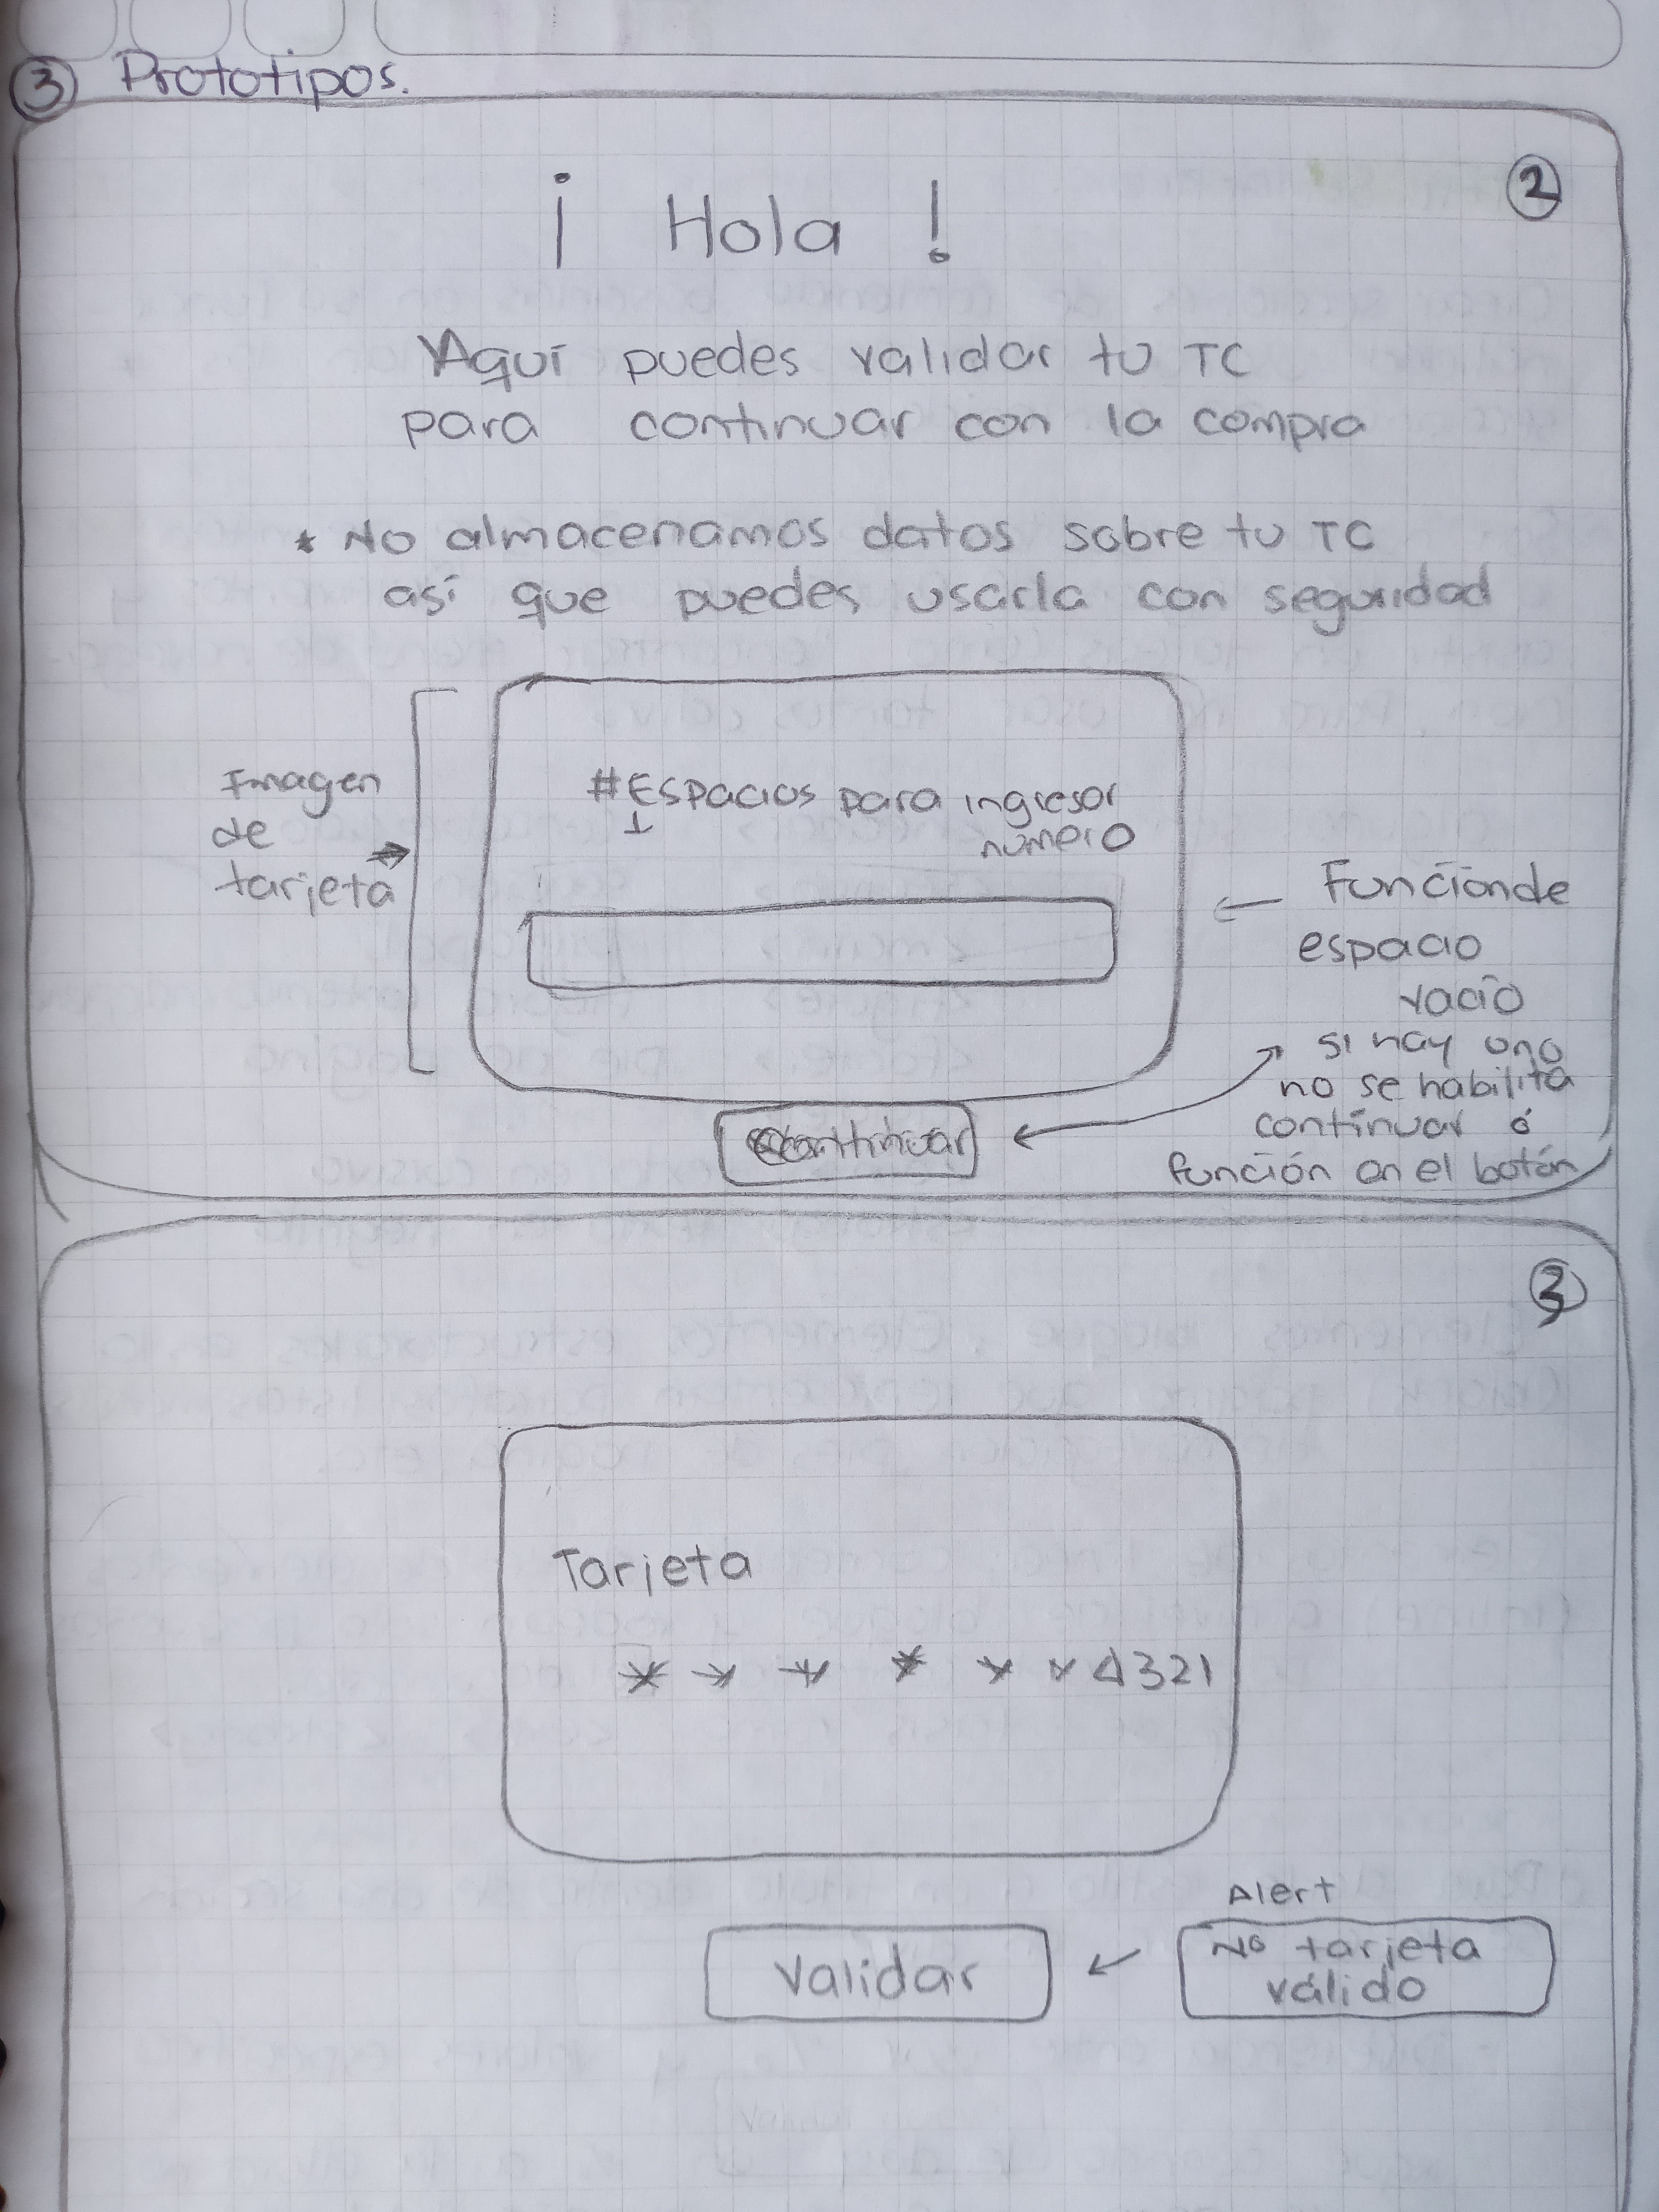 ③ Prototipos.
②
¡ Hola !
Aquí puedes validar tu TC
para continuar con la compra
* No almacenamos datos sobre tu TC
así que puedes usarla con seguridad
Imagen
de
tarjeta
#Espacios para ingresar
número
Función de
espacio
vacío
si hay uno
no se habilita
continuar ó
función en el botón
Continuar
③
Tarjeta
* * * * * * 4321
Validar
Alert
No tarjeta
válido